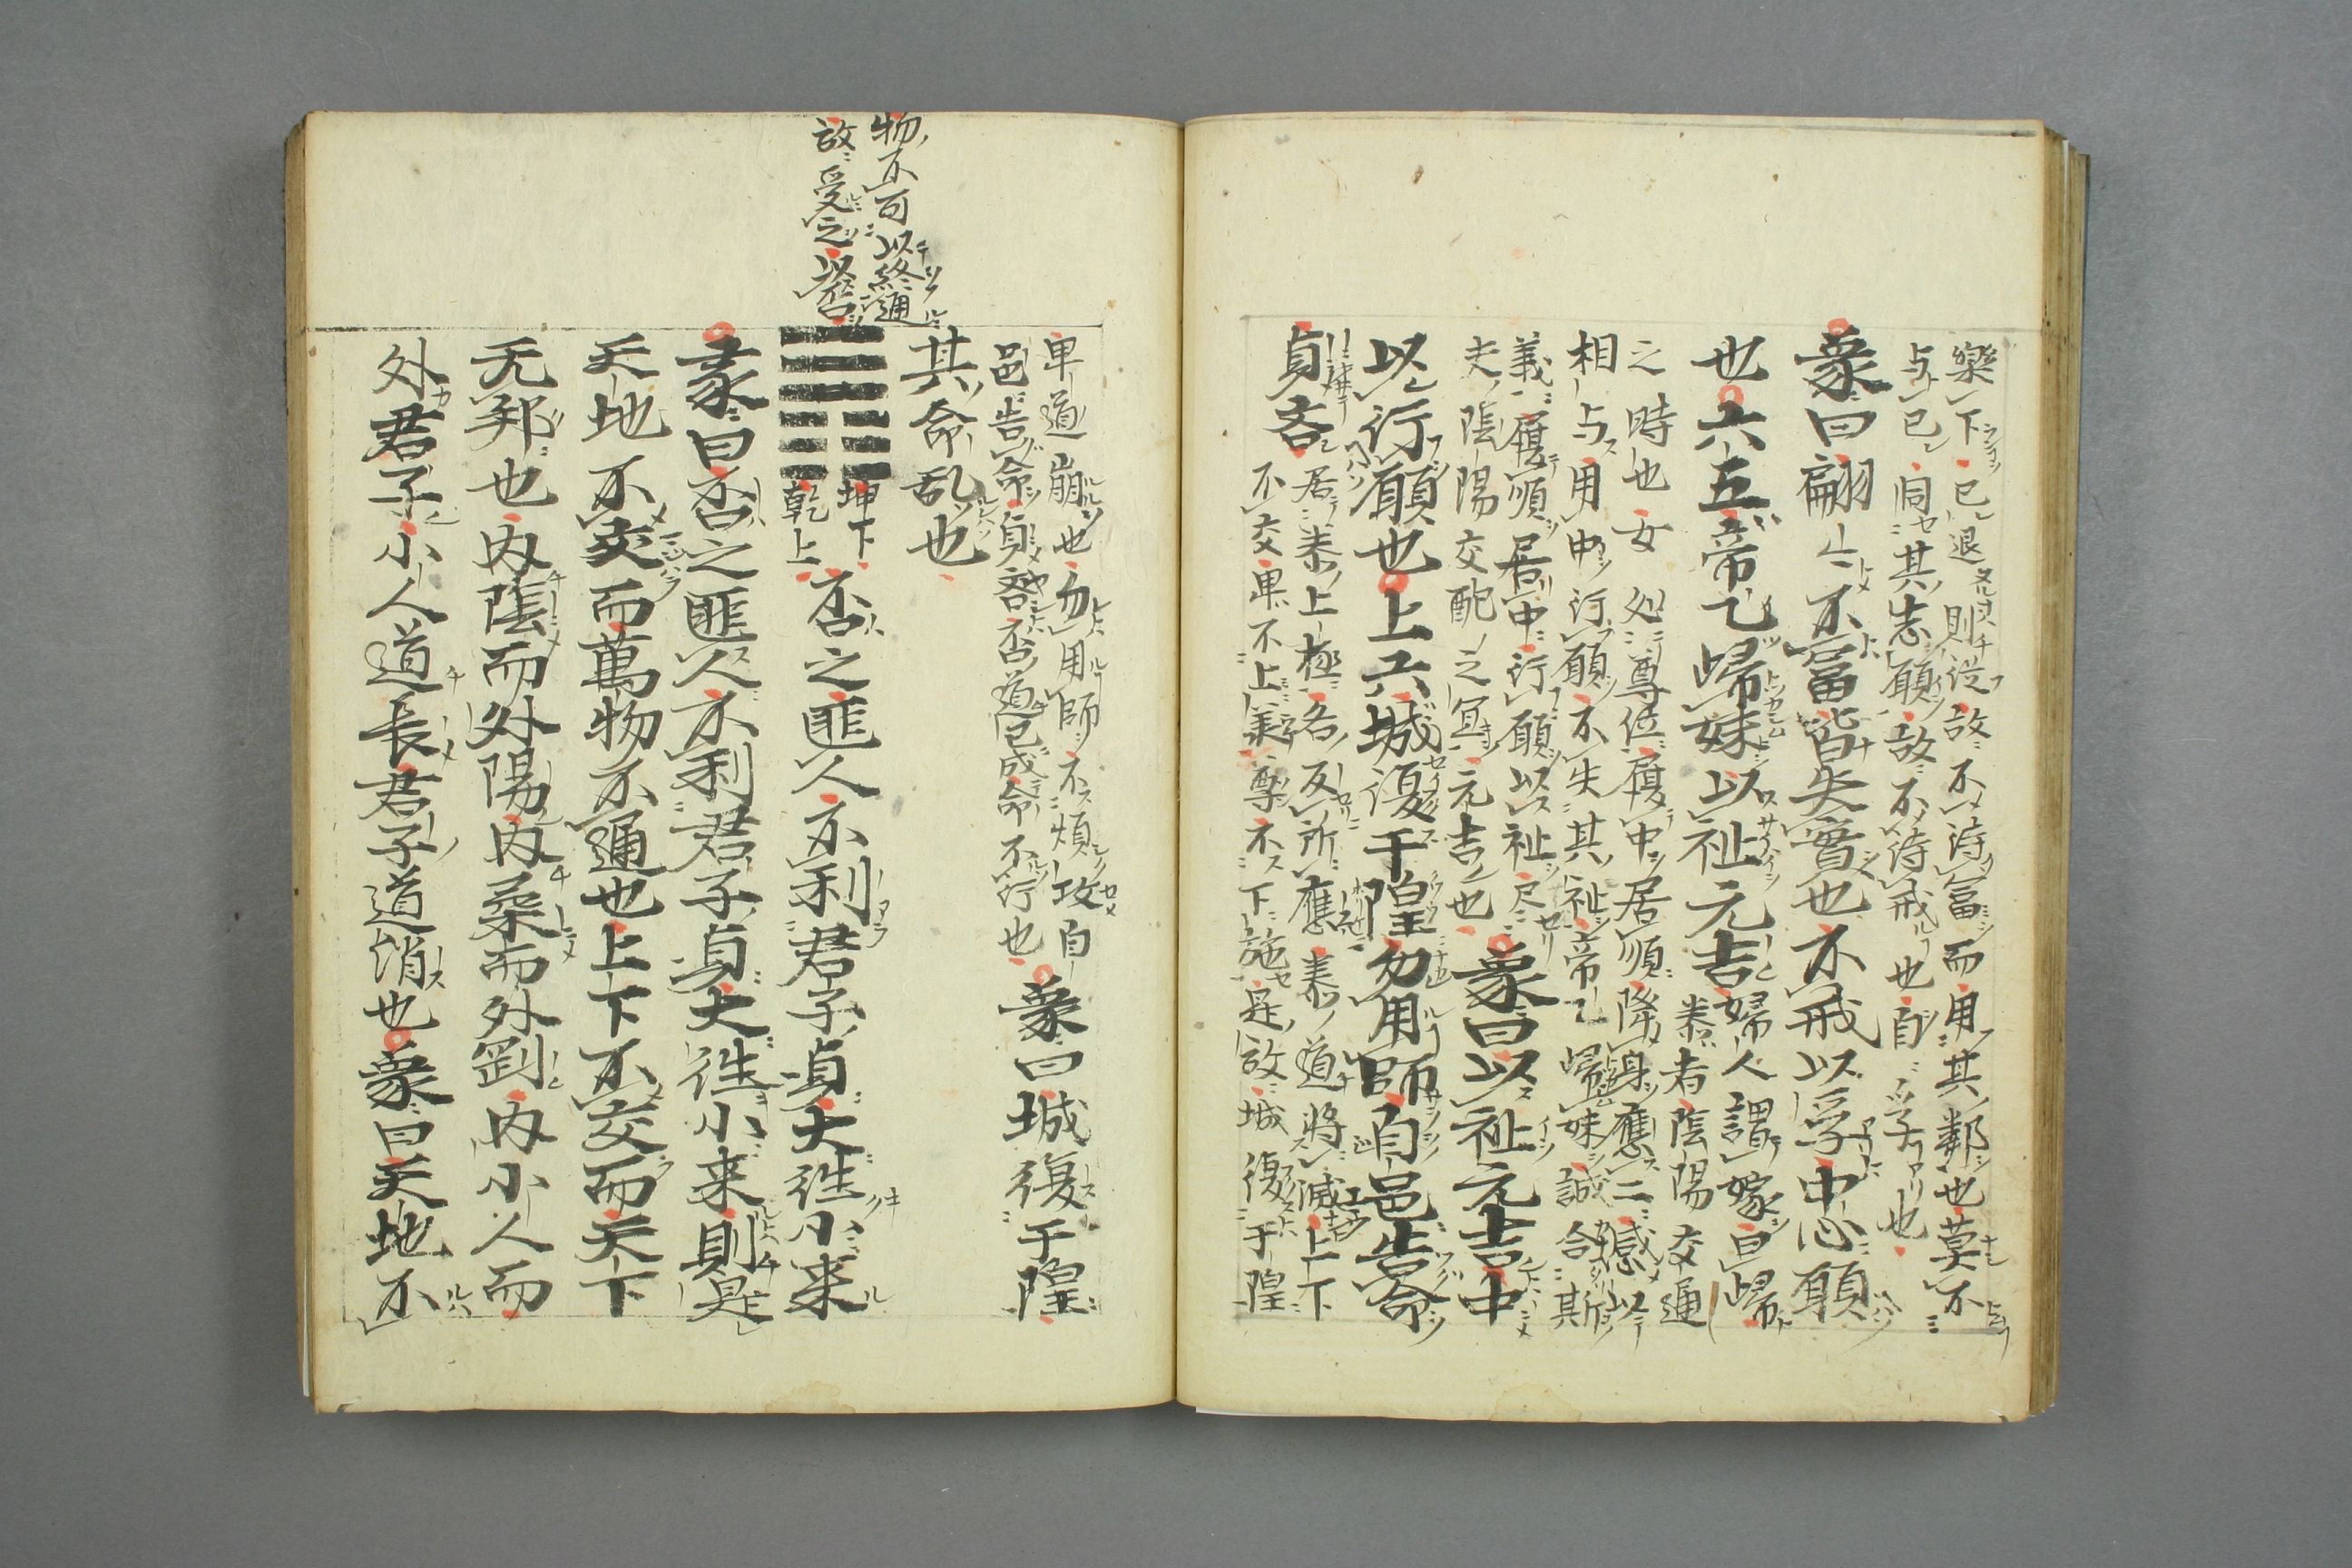 樂下已退則從故不待富而用其鄰也莫不
与已同其志願故不待戒也自孚也
象曰翩〻不富皆失實也不戒以孚中心願
也六五帝乙歸妹以祉元吉婦人謂嫁曰歸
泰者陰陽交通
之時也女処尊位履中居順降身應二感以
相与用中行願不失其祉帝乙歸妹誠合斯
義履順居中行願以祉尽
夫陰陽交配之冝元吉也象曰以祉元吉中
以行願也上六城復于隍勿用師自邑告命
貞吝居泰上極各反所應泰道將滅上下
不交卑不上承尊不下施是故城復于隍
卑道崩也勿用師不煩攻自
邑告命貞吝否道已成命不行也象曰城復于隍
其命乱也
物不可以終通
故受之以否
坤下
乾上
否之匪人不利君子貞大往小来
彖曰否之匪人不利君子貞大往小来則是
天地不交而萬物不通也上下不交而天下
无邦也内陰而外陽内柔而外剛内小人而
外君子小人道長君子道消也象曰天地不